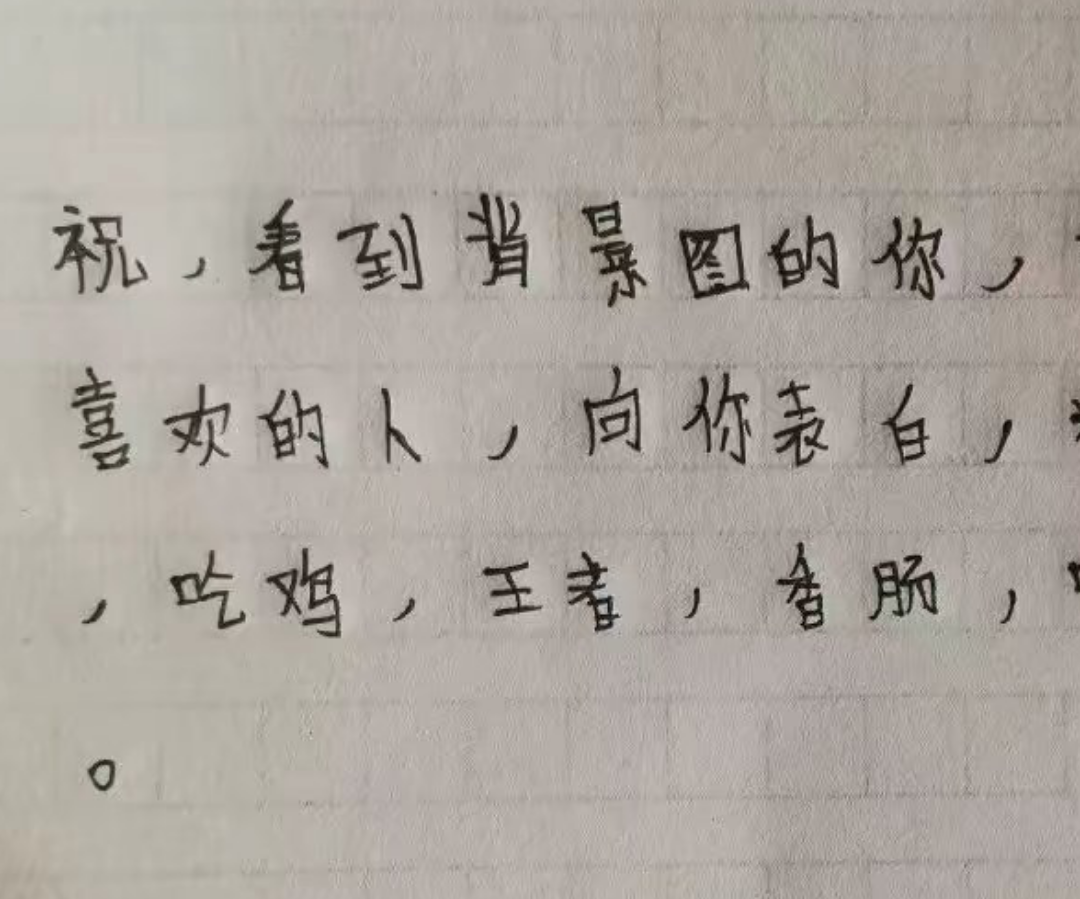 祝，看到背景图的你，
喜欢的人，向你表白，
，吃鸡，王者，香肠，
。